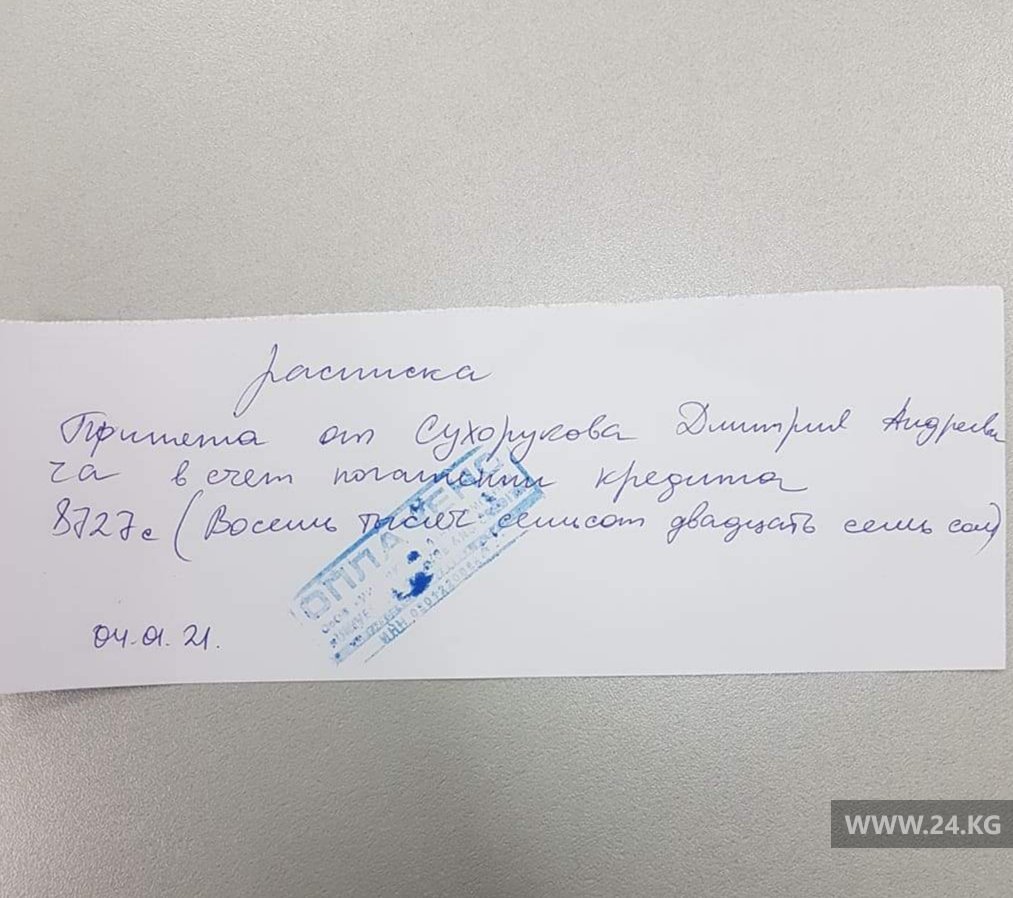 расписка
Принета от Сухорукова Дмитрия Андрееви
ча в счет погашении кредита
8727с (Восемь тысяч семьсот двадцать семь сом)
ОПЛАЧЕНО
04.01.21.
WWW.24.KG